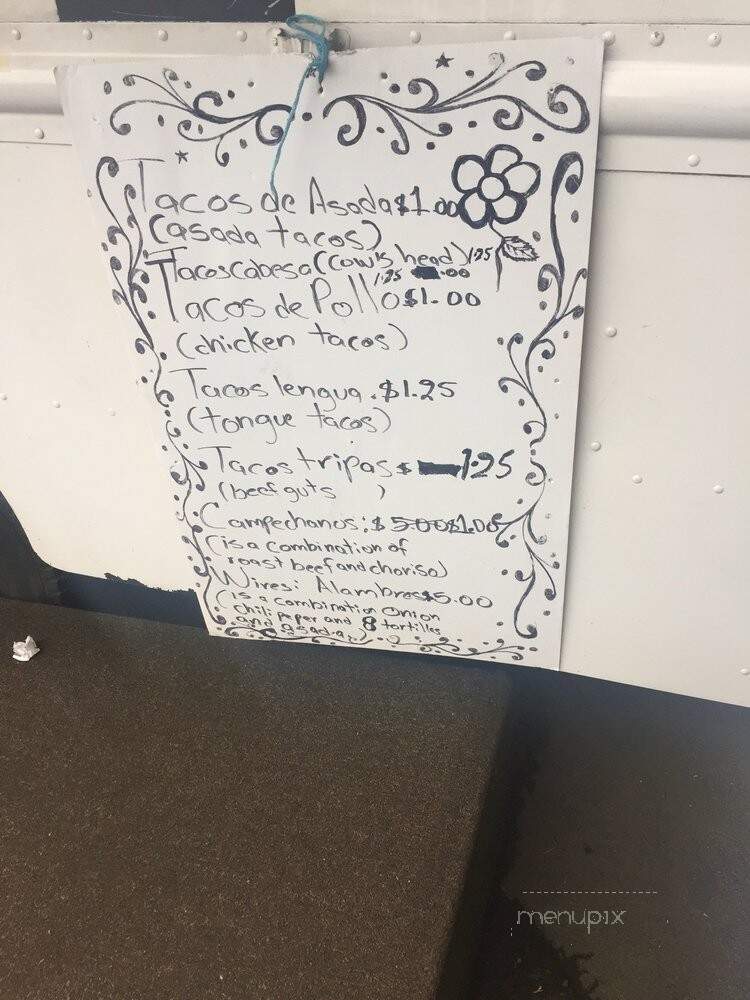 Tacos de Asada $1.00
(asada tacos)
Tacos cabesa (cow's head) 1.25
1.25 .00
Tacos de Pollo $1.00
(chicken tacos)
Tacos lengua . $1.25
(tongue tacos)
Tacos tripas $ 1.25
(beef guts )
Campechanos: $ 500 $1.00
(is a combination of
roast beef and choriso)
Wires: Alambres $5.00
(is a combination onion
chili peper and 8 tortillas
and asada.)
menupix